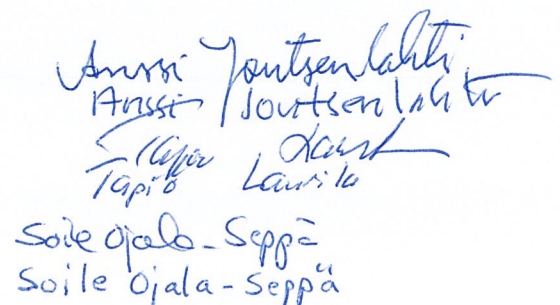 Anssi Joutsenlahti
Anssi Joutsenlahti
Tapio Laurila
Tapio Laurila
Soile Ojala-Seppä
Soile Ojala-Seppä